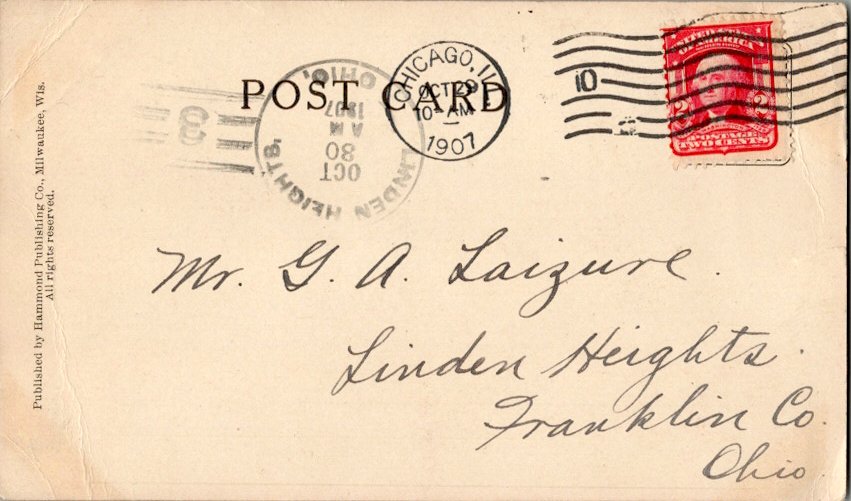 POST CARD
CHICAGO, ILL.
OCT 29
10- AM
1907
10
AMERICA
SERIES 1902
2 2
POSTAGE
TWO CENTS
LINDEN HEIGHTS,
OHIO.
OCT
30
AM
1907
Published by Hammond Publishing Co., Milwaukee, Wis.
All rights reserved.
Mr. G. A. Laizure.
Linden Heights.
Franklin Co.
Ohio